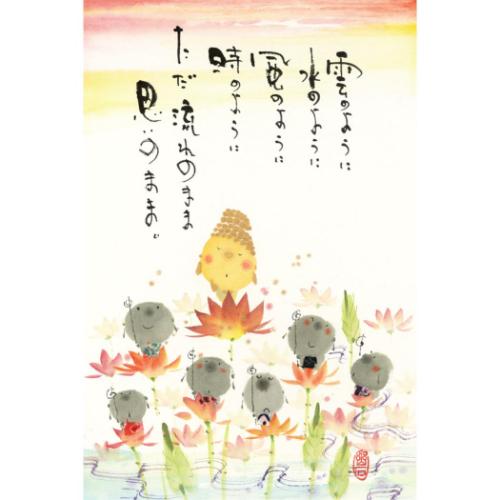 雲のように
水のように
風のように
時のように
ただ流れのまま
思いのまま。